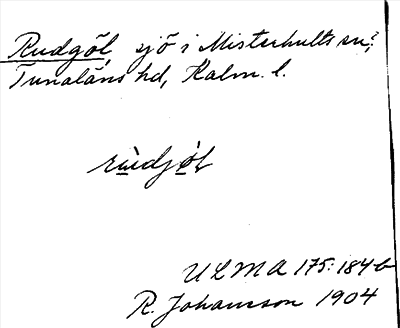 Rudgöl, sjö i Misterhults sn,
Tunaläns hd, Kalm. l.
rùdjö̀l
ULMA 175:184b
R. Johansson 1904